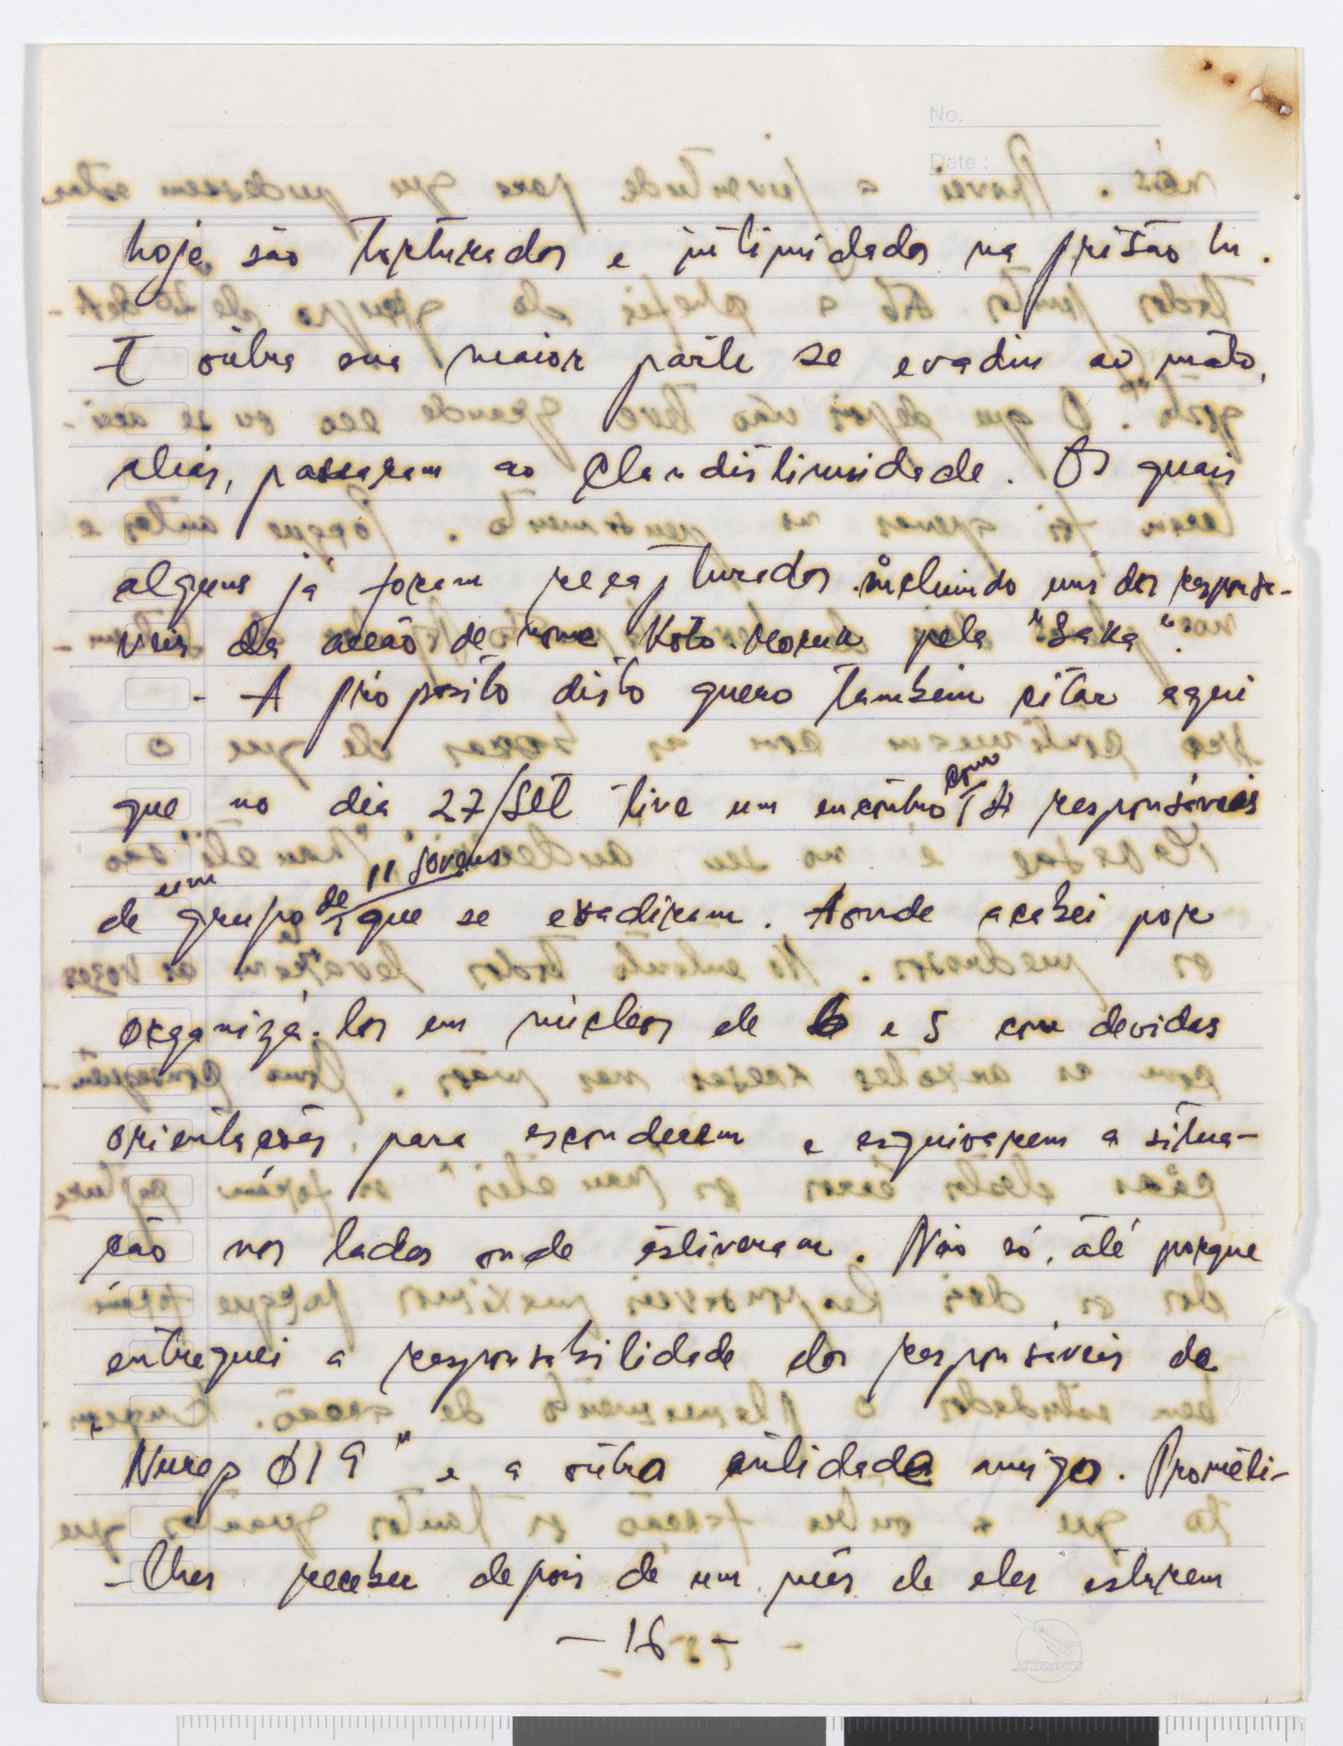 No.
Date :
hoje são torturados e intimidados na prisão tu.
E outra sua maior parte se evadiu ao mato,
alias, passaram ao Clandistinidade. Os quais
alguns já foram recapturados incluindo uns dos responsa-
veis da acção de nome Koto Moruk pela "Saka".
- A próposito disto quero tambem citar aqui
que no dia 27/Set tive um encontro com os responsáveis
de um grupo de 11 jovens que se evadiram. Aonde acabei por
organizá-los em núcleos de 6 e 5 com devidas
orientações para esconderem e esquivarem a situa-
ção nos lados onde estiveram. Não só, até porque
entreguei a responsabilidade dos responsáveis da
"Nurep 019" e a outra entidade amigo. Prometi-
-lhes receber depois de um mês de eles estarem
- 16 -